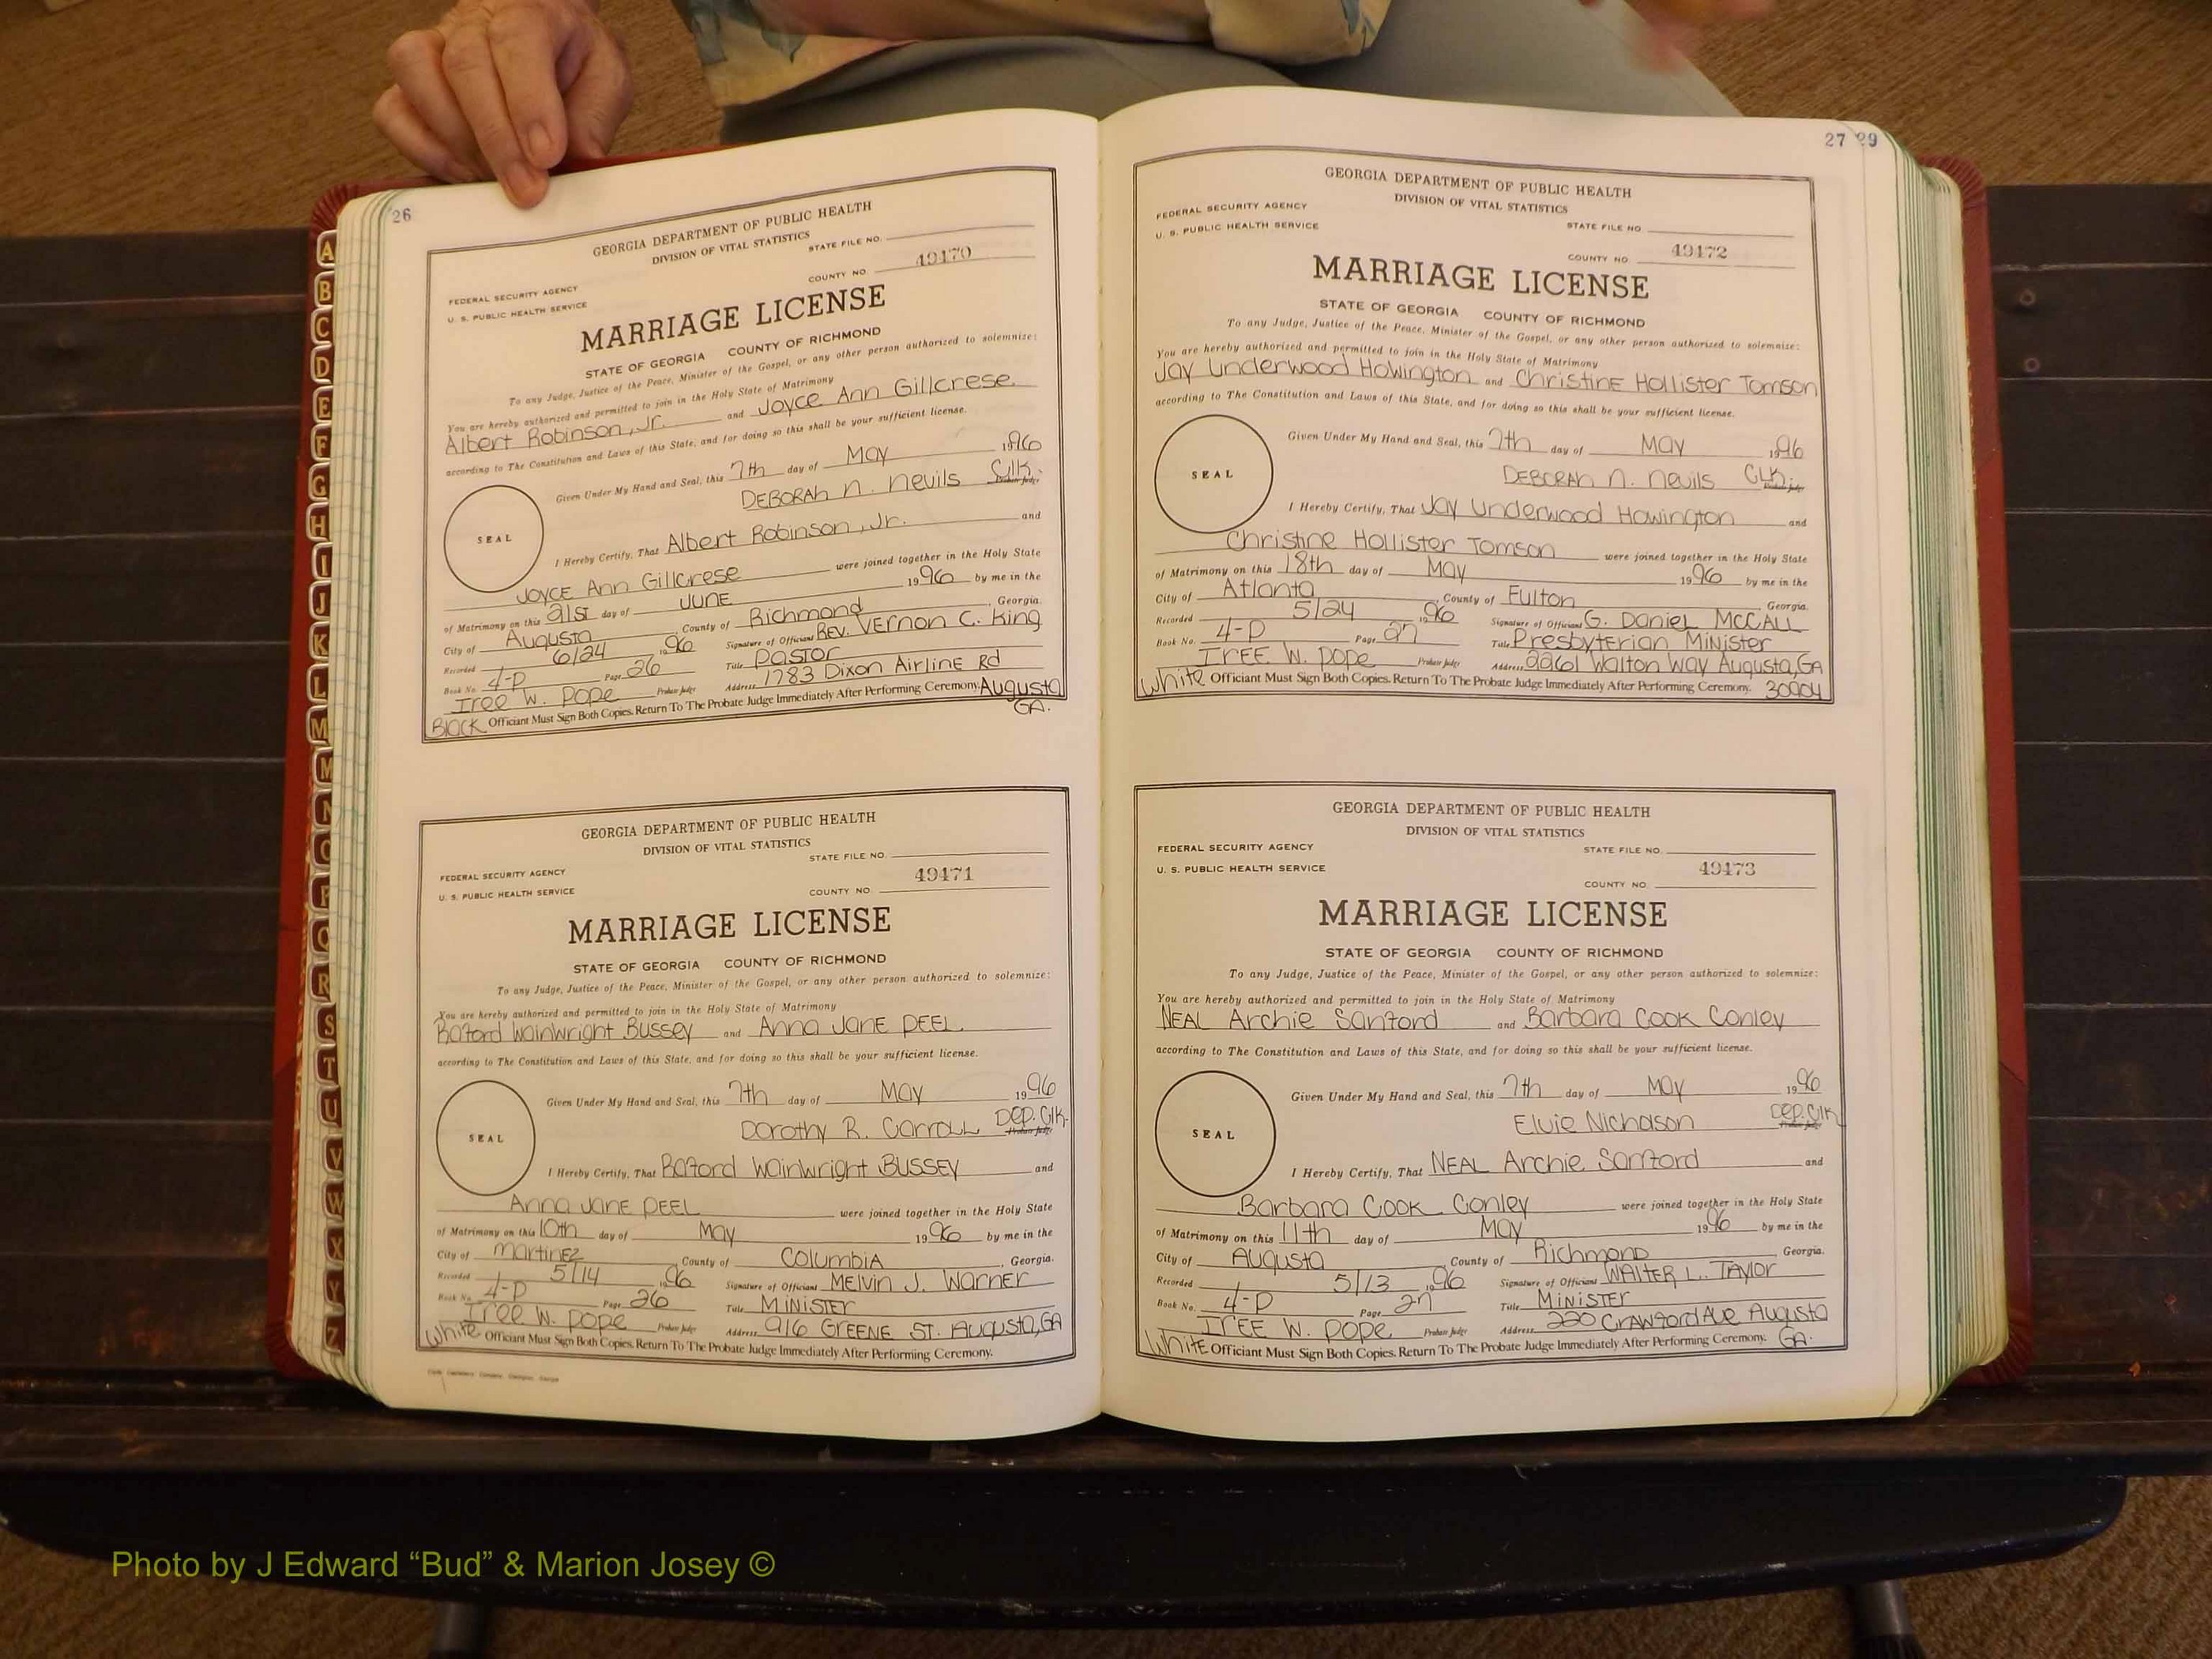 26
GEORGIA DEPARTMENT OF PUBLIC HEALTH
DIVISION OF VITAL STATISTICS
STATE FILE NO.
FEDERAL SECURITY AGENCY
U. S. PUBLIC HEALTH SERVICE
COUNTY NO. 49170
MARRIAGE LICENSE
STATE OF GEORGIA COUNTY OF RICHMOND
To any Judge, Justice of the Peace, Minister of the Gospel, or any other person authorized to solemnize:
You are hereby authorized and permitted to join in the Holy State of Matrimony
Albert Robinson, Jr. and Joyce Ann Gillcrese
according to The Constitution and Laws of this State, and for doing so this shall be your sufficient license.
Given Under My Hand and Seal, this 7th day of May 1996
DEBORAH N. Nevils Clk.
SEAL
I Hereby Certify, That Albert Robinson, Jr. and
JOYCE Ann Gillcrese were joined together in the Holy State
of Matrimony on this 21st day of JUNE 1996 by me in the
City of Augusta County of Richmond, Georgia.
Recorded 6/24 1996 Signature of Officiant REV. VERNON C. King
Book No. 4-P Page 26 Title Pastor
IREE W. POPE Probate Judge Address 1783 Dixon Airline Rd
Black Officiant Must Sign Both Copies. Return To The Probate Judge Immediately After Performing Ceremony. Augusta
GA.
GEORGIA DEPARTMENT OF PUBLIC HEALTH
DIVISION OF VITAL STATISTICS
STATE FILE NO.
FEDERAL SECURITY AGENCY
U. S. PUBLIC HEALTH SERVICE
COUNTY NO. 49171
MARRIAGE LICENSE
STATE OF GEORGIA COUNTY OF RICHMOND
To any Judge, Justice of the Peace, Minister of the Gospel, or any other person authorized to solemnize:
You are hereby authorized and permitted to join in the Holy State of Matrimony
Baford Wainwright Bussey and Anna JANE PEEL
according to The Constitution and Laws of this State, and for doing so this shall be your sufficient license.
Given Under My Hand and Seal, this 7th day of May 1996
Dorothy R. Carroll Dep. Clk.
SEAL
I Hereby Certify, That Baford Wainwright BUSSEY and
Anna JANE PEEL were joined together in the Holy State
of Matrimony on this 10th day of May 1996 by me in the
City of Martinez County of Columbia, Georgia.
Recorded 5/14 1996 Signature of Officiant Melvin J. Warner
Book No. 4-P Page 26 Title MINISTER
IREE W. POPE Probate Judge Address 916 GREENE ST. Augusta, GA
White Officiant Must Sign Both Copies. Return To The Probate Judge Immediately After Performing Ceremony.
27 29
GEORGIA DEPARTMENT OF PUBLIC HEALTH
DIVISION OF VITAL STATISTICS
FEDERAL SECURITY AGENCY
U. S. PUBLIC HEALTH SERVICE
STATE FILE NO
COUNTY NO 49172
MARRIAGE LICENSE
STATE OF GEORGIA COUNTY OF RICHMOND
To any Judge, Justice of the Peace, Minister of the Gospel, or any other person authorized to solemnize:
You are hereby authorized and permitted to join in the Holy State of Matrimony
Jay Underwood Howington and Christine Hollister Tomson
according to The Constitution and Laws of this State, and for doing so this shall be your sufficient license.
Given Under My Hand and Seal, this 7th day of May 1996
DEBORAH N. Nevils CLK.
SEAL
I Hereby Certify, That Jay Underwood Howington and
Christine Hollister Tomson were joined together in the Holy State
of Matrimony on this 18th day of May 1996 by me in the
City of Atlanta, County of Fulton, Georgia.
Recorded 5/24 1996 Signature of Officiant G. Daniel McCALL
Book No. 4-P Page 27 Title Presbyterian Minister
IREE W. POPE Probate Judge Address 2261 Walton Way Augusta, GA
White Officiant Must Sign Both Copies. Return To The Probate Judge Immediately After Performing Ceremony. 30904
GEORGIA DEPARTMENT OF PUBLIC HEALTH
DIVISION OF VITAL STATISTICS
FEDERAL SECURITY AGENCY
STATE FILE NO.
U. S. PUBLIC HEALTH SERVICE
COUNTY NO. 49173
MARRIAGE LICENSE
STATE OF GEORGIA COUNTY OF RICHMOND
To any Judge, Justice of the Peace, Minister of the Gospel, or any other person authorized to solemnize:
You are hereby authorized and permitted to join in the Holy State of Matrimony
NEAL Archie Sanford and Barbara Cook Conley
according to The Constitution and Laws of this State, and for doing so this shall be your sufficient license.
Given Under My Hand and Seal, this 7th day of May 1996
Elvie Nicholson Dep. Clk
SEAL
I Hereby Certify, That NEAL Archie Sanford and
Barbara Cook Conley were joined together in the Holy State
of Matrimony on this 11th day of May 1996 by me in the
City of Augusta County of Richmond, Georgia.
Recorded 5/13 1996 Signature of Officiant WALTER L. TAYLOR
Book No. 4-P Page 27 Title MINISTER
IREE W. POPE Probate Judge Address 220 Crawford Ave Augusta
White Officiant Must Sign Both Copies. Return To The Probate Judge Immediately After Performing Ceremony. GA.
A
B
C
D
E
F
G
H
I
J
K
L
M
M
N
O
P
Q
R
S
T
U
V
W
X
Y
Z
Photo by J Edward “Bud” & Marion Josey ©